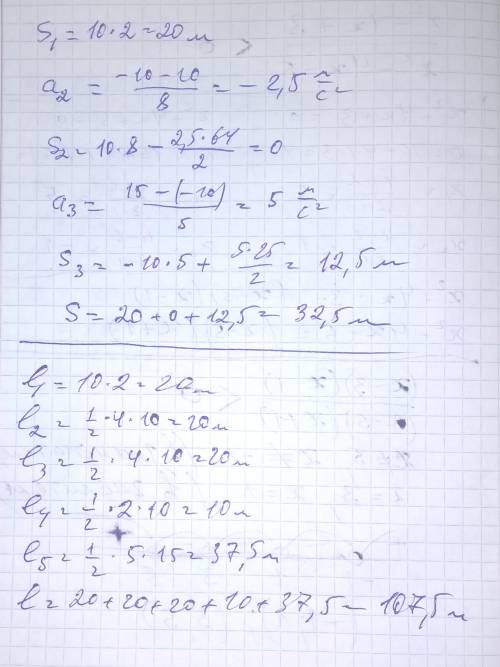 S₁ = 10·2 = 20 м
a₂ = (-10-10)/8 = -2,5 м/с²
S₂ = 10·8 - (2,5·64)/2 = 0
a₃ = (15-(-10))/5 = 5 м/с²
S₃ = -10·5 + (5·25)/2 = 12,5 м
S = 20+0+12,5 = 32,5 м
l₁ = 10·2 = 20 м
l₂ = 1/2·4·10 = 20 м
l₃ = 1/2·4·10 = 20 м
l₄ = 1/2·2·10 = 10 м
l₅ = 1/2·5·15 = 37,5 м
l = 20+20+20+10+37,5 = 107,5 м